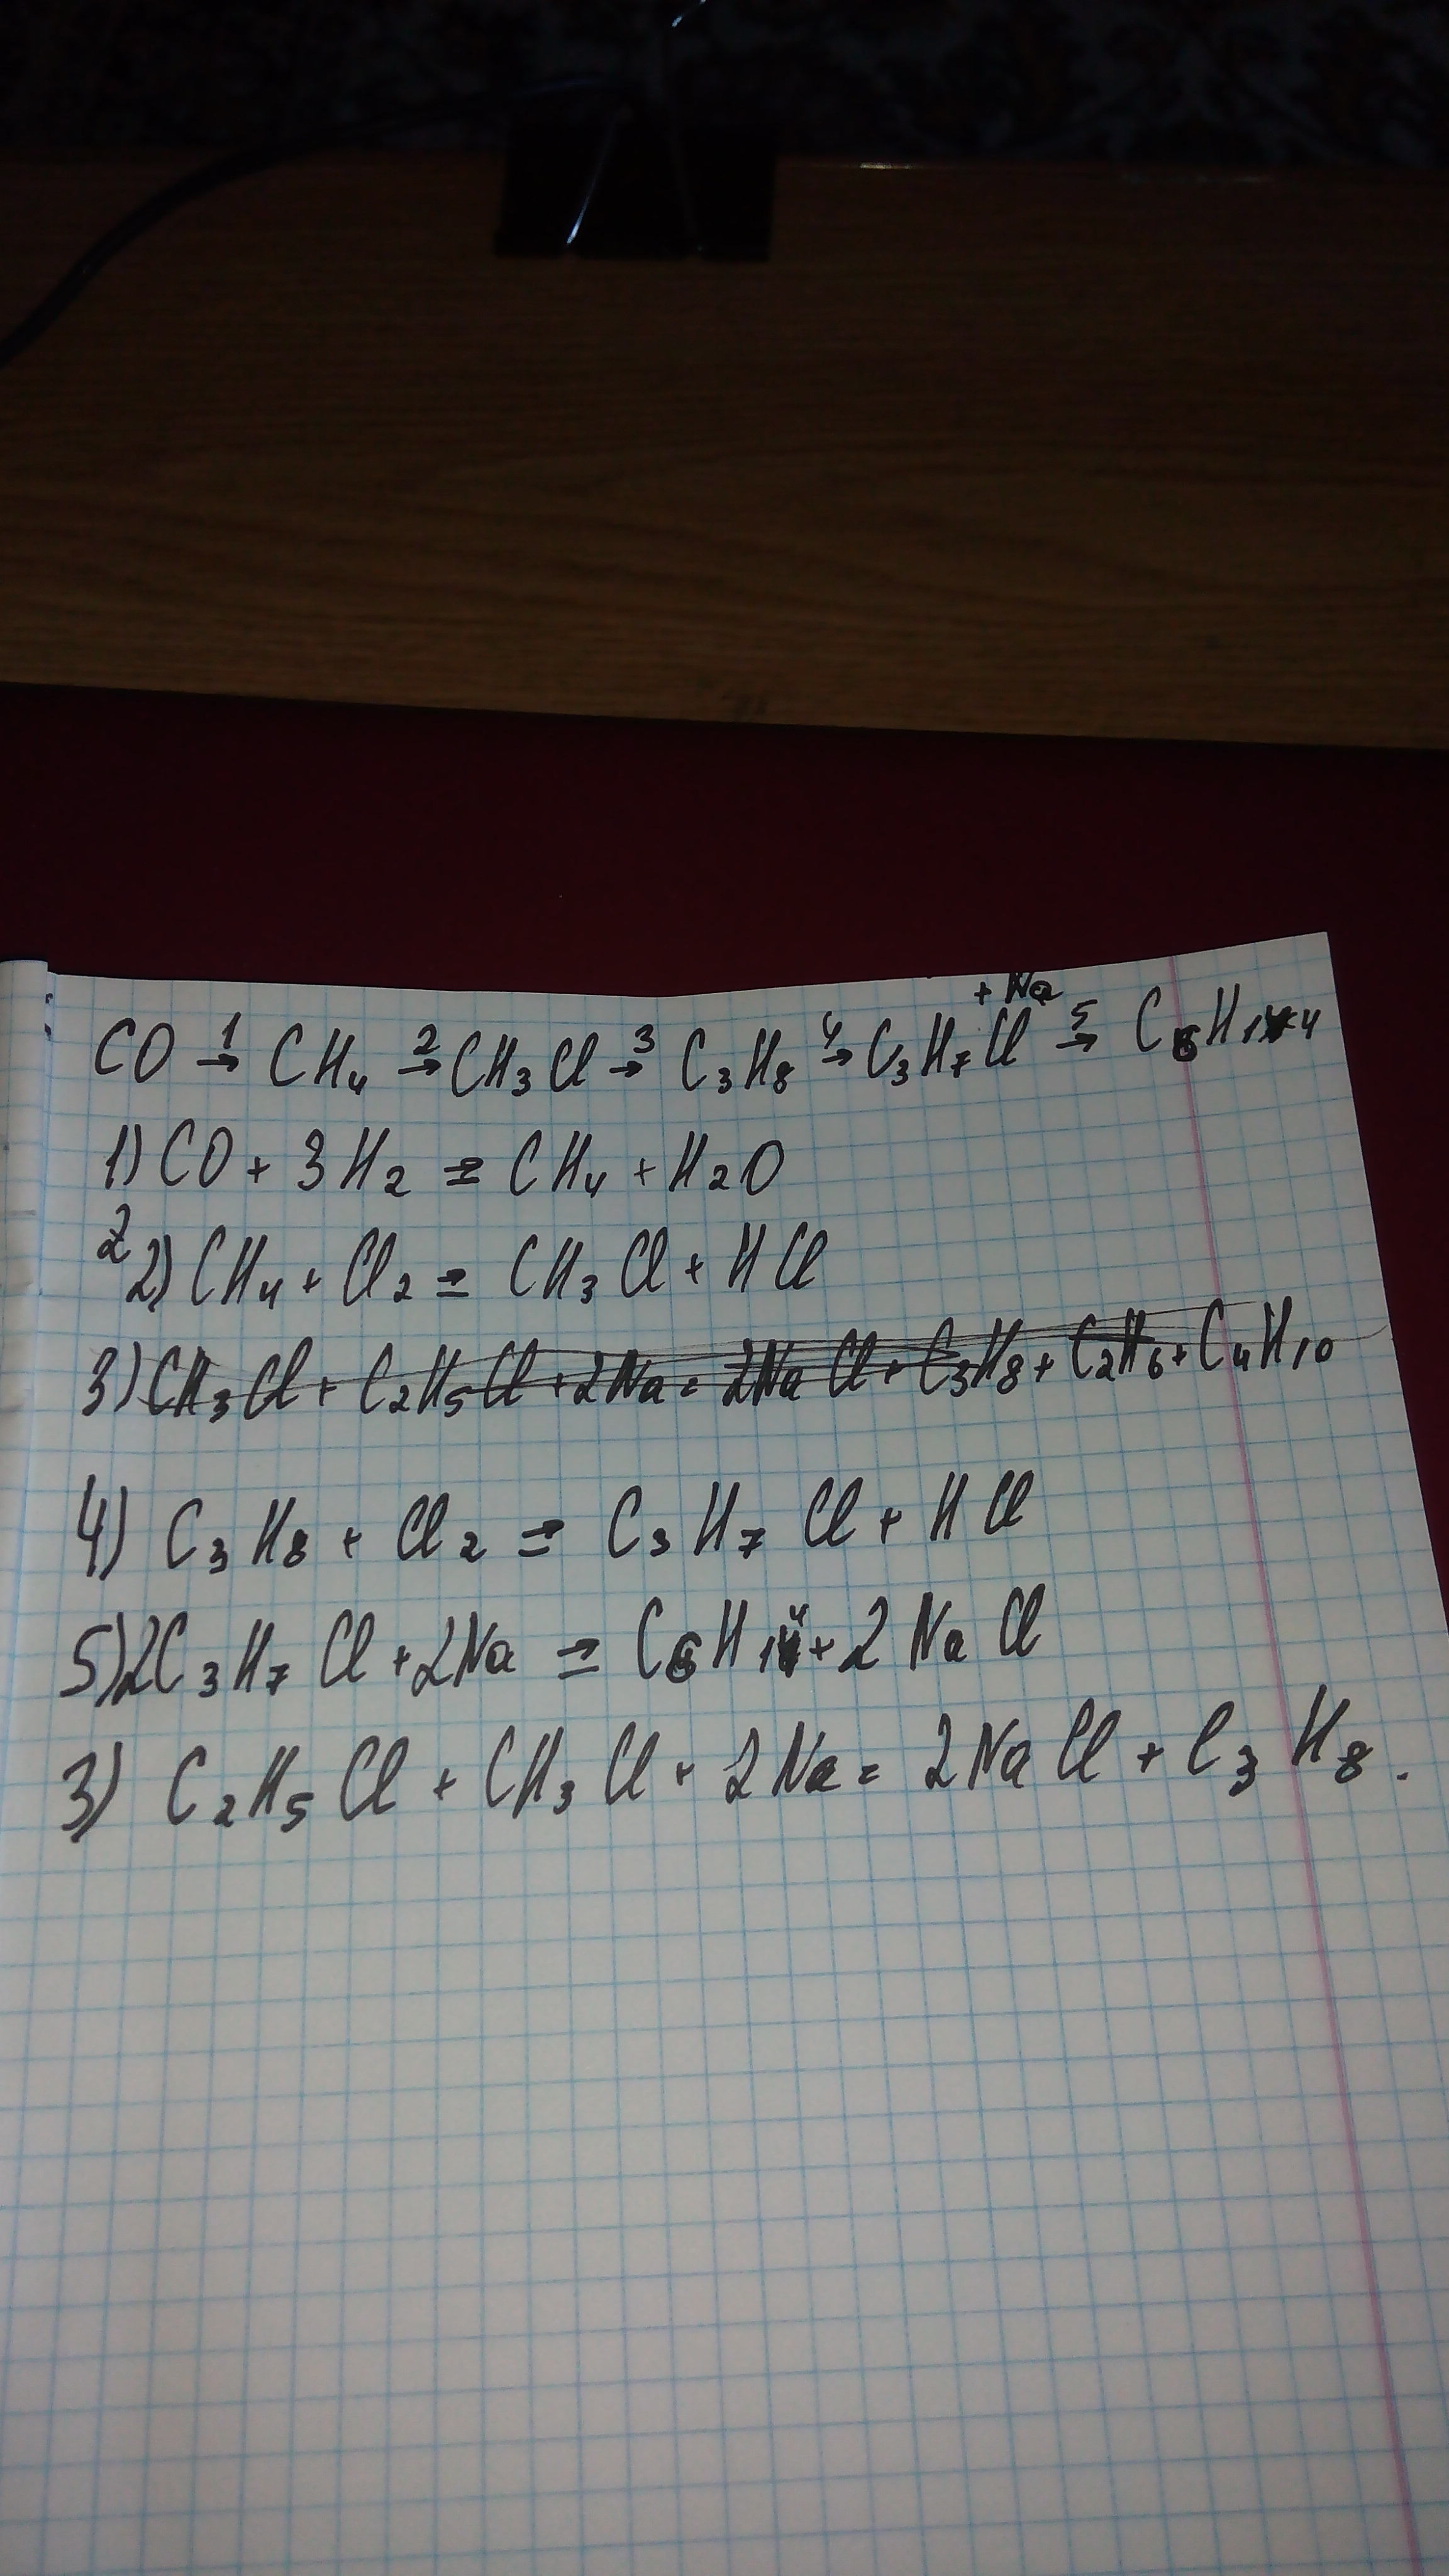 + Na
CO →1 CH4 →2 CH3Cl →3 C3H8 →4 C3H7Cl →5 C6H14
1) CO + 3H2 = CH4 + H2O
2 2) CH4 + Cl2 = CH3Cl + HCl
3) CH3Cl + C2H5Cl + 2Na = 2NaCl + C3H8 + C2H6 + C4H10
4) C3H8 + Cl2 = C3H7Cl + HCl
5) 2C3H7Cl + 2Na = C6H14 + 2NaCl
3) C2H5Cl + CH3Cl + 2Na = 2NaCl + C3H8.